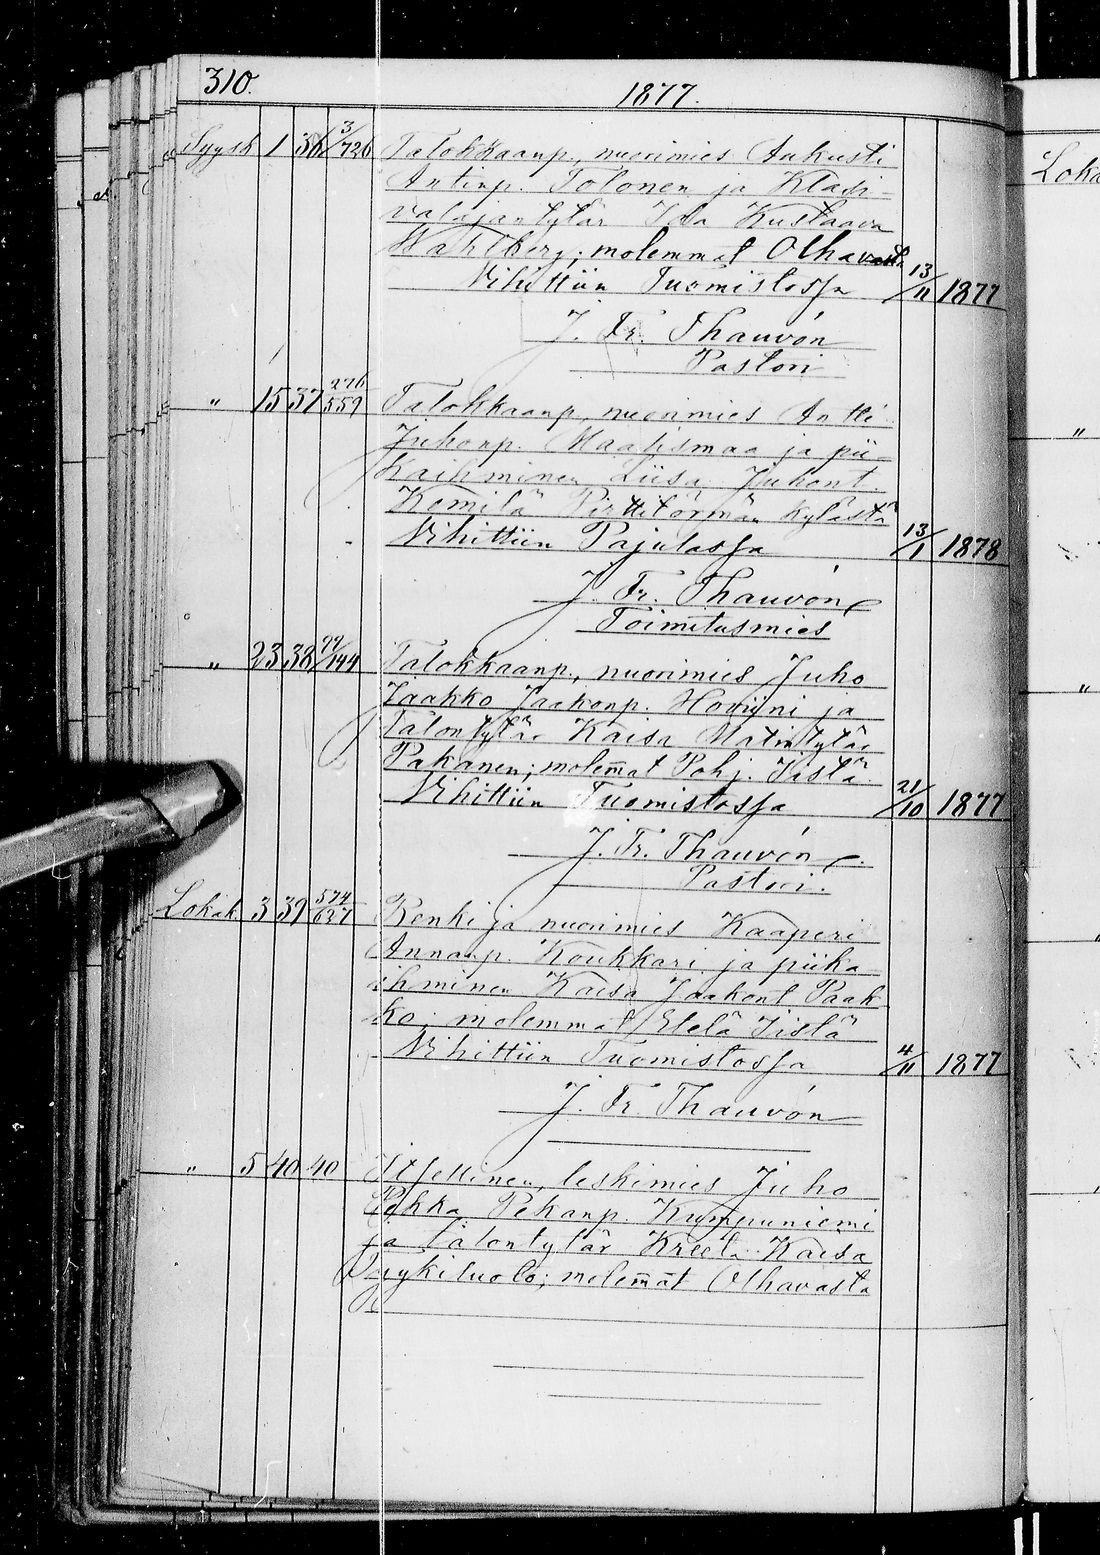 310.
1877.
Syysk 1 36 3/726 Talokkaanp., nuorimies Aukusti
Antinp. Tolonen ja Klasi-
valajantytär Ida Kustaava
Wahlberg; molemmat Olhavasta
Vihittiin Tuomistossa 13/11 1877
J. Fr. Thauvón
Pastori
" 15 37 276/559 Talokkaanp., nuorimies Antti
Juhonp. Maalismaa ja pii-
kaihminen Liisa Juhont.
Komilä Pirttitörmän kylästä
Vihittiin Pajulassa 13/1 1878
J. Fr. Thauvón
Toimitusmies
" 23 38 /144 Talokkaanp., nuorimies Juho
Jaakko Jaakonp. Hoviini ja
Talontytär Kaisa Matintytär
Pakanen; molemat Pohj. Iistä
Vihittiin Tuomistossa 21/10 1877
J. Fr. Thauvón
Pastori.
Lokak 3 39 574/637 Renki ja nuorimies Kaaperi
Annanp. Koukkari ja piika-
ihminen Kaisa Jaakont Paak-
ko; molemmat Etelä Iistä
Vihittiin Tuomistossa 4/11 1877
J. Fr. Thauvón
" 5 40 40 Itsellinen, leskimies Juho
Pekka Pekanp. Kumpuniemi
ja talontytär Kreeta Kaisa
Jyykiluoto; molemat Olhavasta
Loka
"
"
"
"